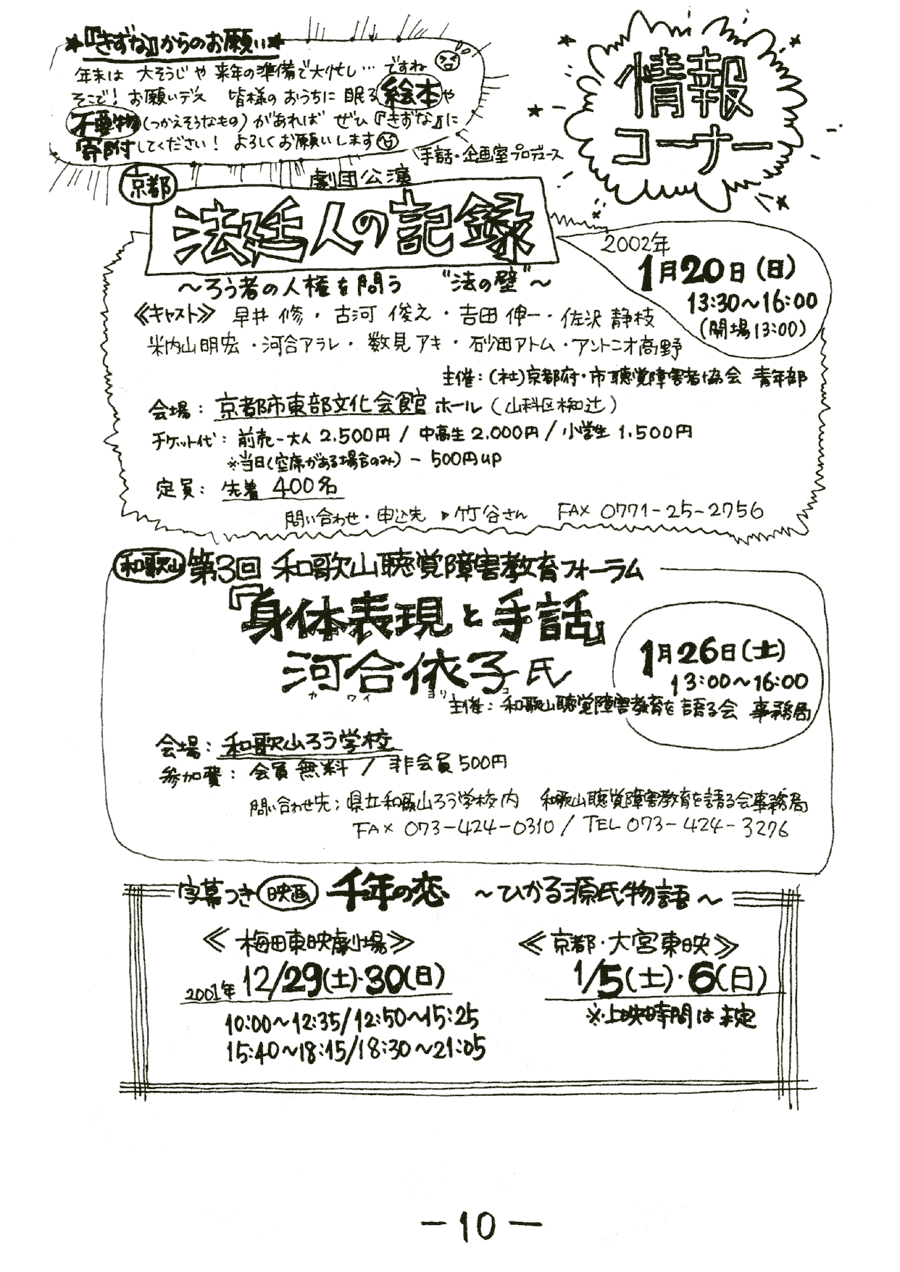 ★『きずな』からのお願い★
年末は 大そうじや 来年の準備で大忙し… ですね
そこで! お願いデス 皆様のおうちに 眠る絵本や
不要物(つかえそうなもの) があれば ぜひ『きずな』に
寄附してください! よろしくお願いします
情報
コーナー
手話・企画室プロデュース
京都 劇団公演
法廷人の記録
〜ろう者の人権を問う “法の壁”〜
2002年
1月20日(日)
13:30〜16:00
(開場13:00)
≪キャスト≫ 早井 修・古河 俊之・吉田 伸一・佐沢 静枝
米内山明宏・河合アラレ・数見アキ・砂田アトム・アントニオ高野
主催:(社)京都府・市聴覚障害者協会 青年部
会場: 京都市東部文化会館 ホール (山科区椥辻)
チケット代: 前売-大人 2.500円 / 中高生 2.000円 / 小学生 1.500円
※当日(空席がある場合のみ) - 500円up
定員: 先着 400名
問い合わせ・申込先 ▶竹谷さん FAX 0771-25-2756
和歌山 第3回 和歌山聴覚障害教育フォーラム
『身体表現と手話』
河合依子氏
カワイ ヨリコ
1月26日(土)
13:00〜16:00
主催: 和歌山聴覚障害教育を語る会 事務局
会場: 和歌山ろう学校
参加費: 会員 無料 / 非会員 500円
問い合わせ先: 県立和歌山ろう学校内 和歌山聴覚障害教育を語る会事務局
FAX 073-424-0310 / TEL 073-424-3276
字幕つき 映画 千年の恋 〜ひかる源氏物語〜
≪梅田東映劇場≫
2001年 12/29(土)・30(日)
10:00〜12:35/12:50〜15:25
15:40〜18:15/18:30〜21:05
≪京都・大宮東映≫
1/5(土)・6(日)
※上映時間は未定
-10-